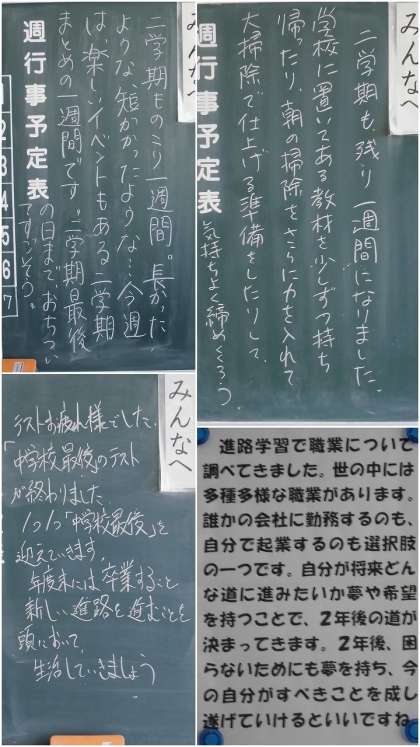 みんなへ
二学期ものこり一週間。長かった
ような、短かったような…今週
は、楽しいイベントもある二学期
まとめの一週間です。二学期最後
の日まで、おちついて
すごそう。
週行事予定表
1
2
3
4
5
6
7
みんなへ
二学期も、残り一週間になりました。
学校に置いてある教材を少しずつ持ち
帰ったり、朝の掃除をさらに力を入れて
大掃除で仕上げる準備をしたりして、
気持ちよく締めくくろう。
週行事予定表
みんなへ
テストお疲れ様でした。
「中学校最後」のテスト
が終わりました。
1つ1つ「中学校最後」を
迎えていきます。
年度末には卒業すること
新しい進路を進むことを
頭において、
生活していきましょう
進路学習で職業について
調べてきました。世の中には
多種多様な職業があります。
誰かの会社に勤務するのも、
自分で起業するのも選択肢
の一つです。自分が将来どん
な道に進みたいか夢や希望
を持つことで、2年後の道が
決まってきます。2年後、困
らないためにも夢を持ち、今
の自分がすべきことを成し
遂げていけるといいですね